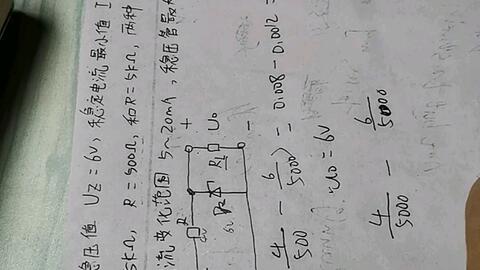 急压值 UZ = 6V, 稳定电流 最小值 I
5kΩ, R = 500Ω, 和R = 5kΩ, 两种
流变化范围 5~20mA, 稳压管最
+ U₀ −
R
R_L
D_Z
6V
4/500 − 6/5000 = 0.008 − 0.002 =
U₀ = 6V
4/5000 − 6/5000